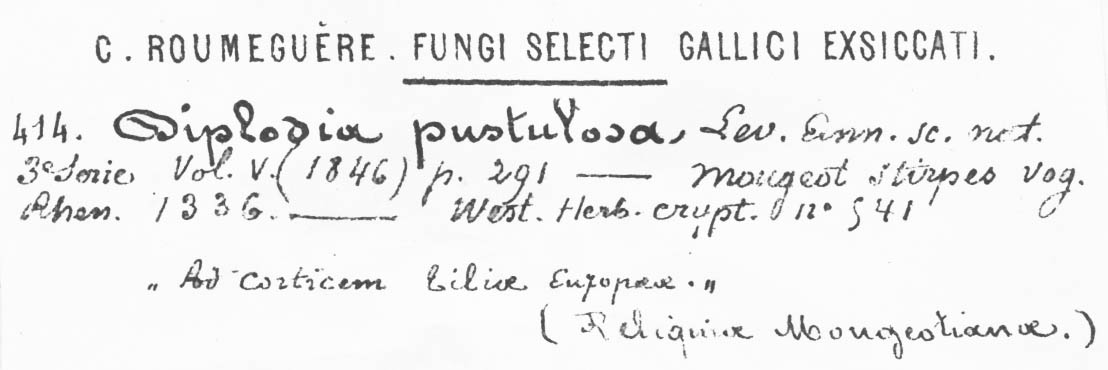 C. ROUMEGUÈRE. FUNGI SELECTI GALLICI EXSICCATI.
414. Diplodia pustulosa, Lev. Ann. sc. nat.
3e Serie Vol. V. (1846) p. 291 — Mougeot Stirpes Vog.
Rhen. 1336. — West. Herb. crypt. no 541
„ Ad corticem Tiliæ Europææ. „
(Reliquiæ Mougeotianæ.)